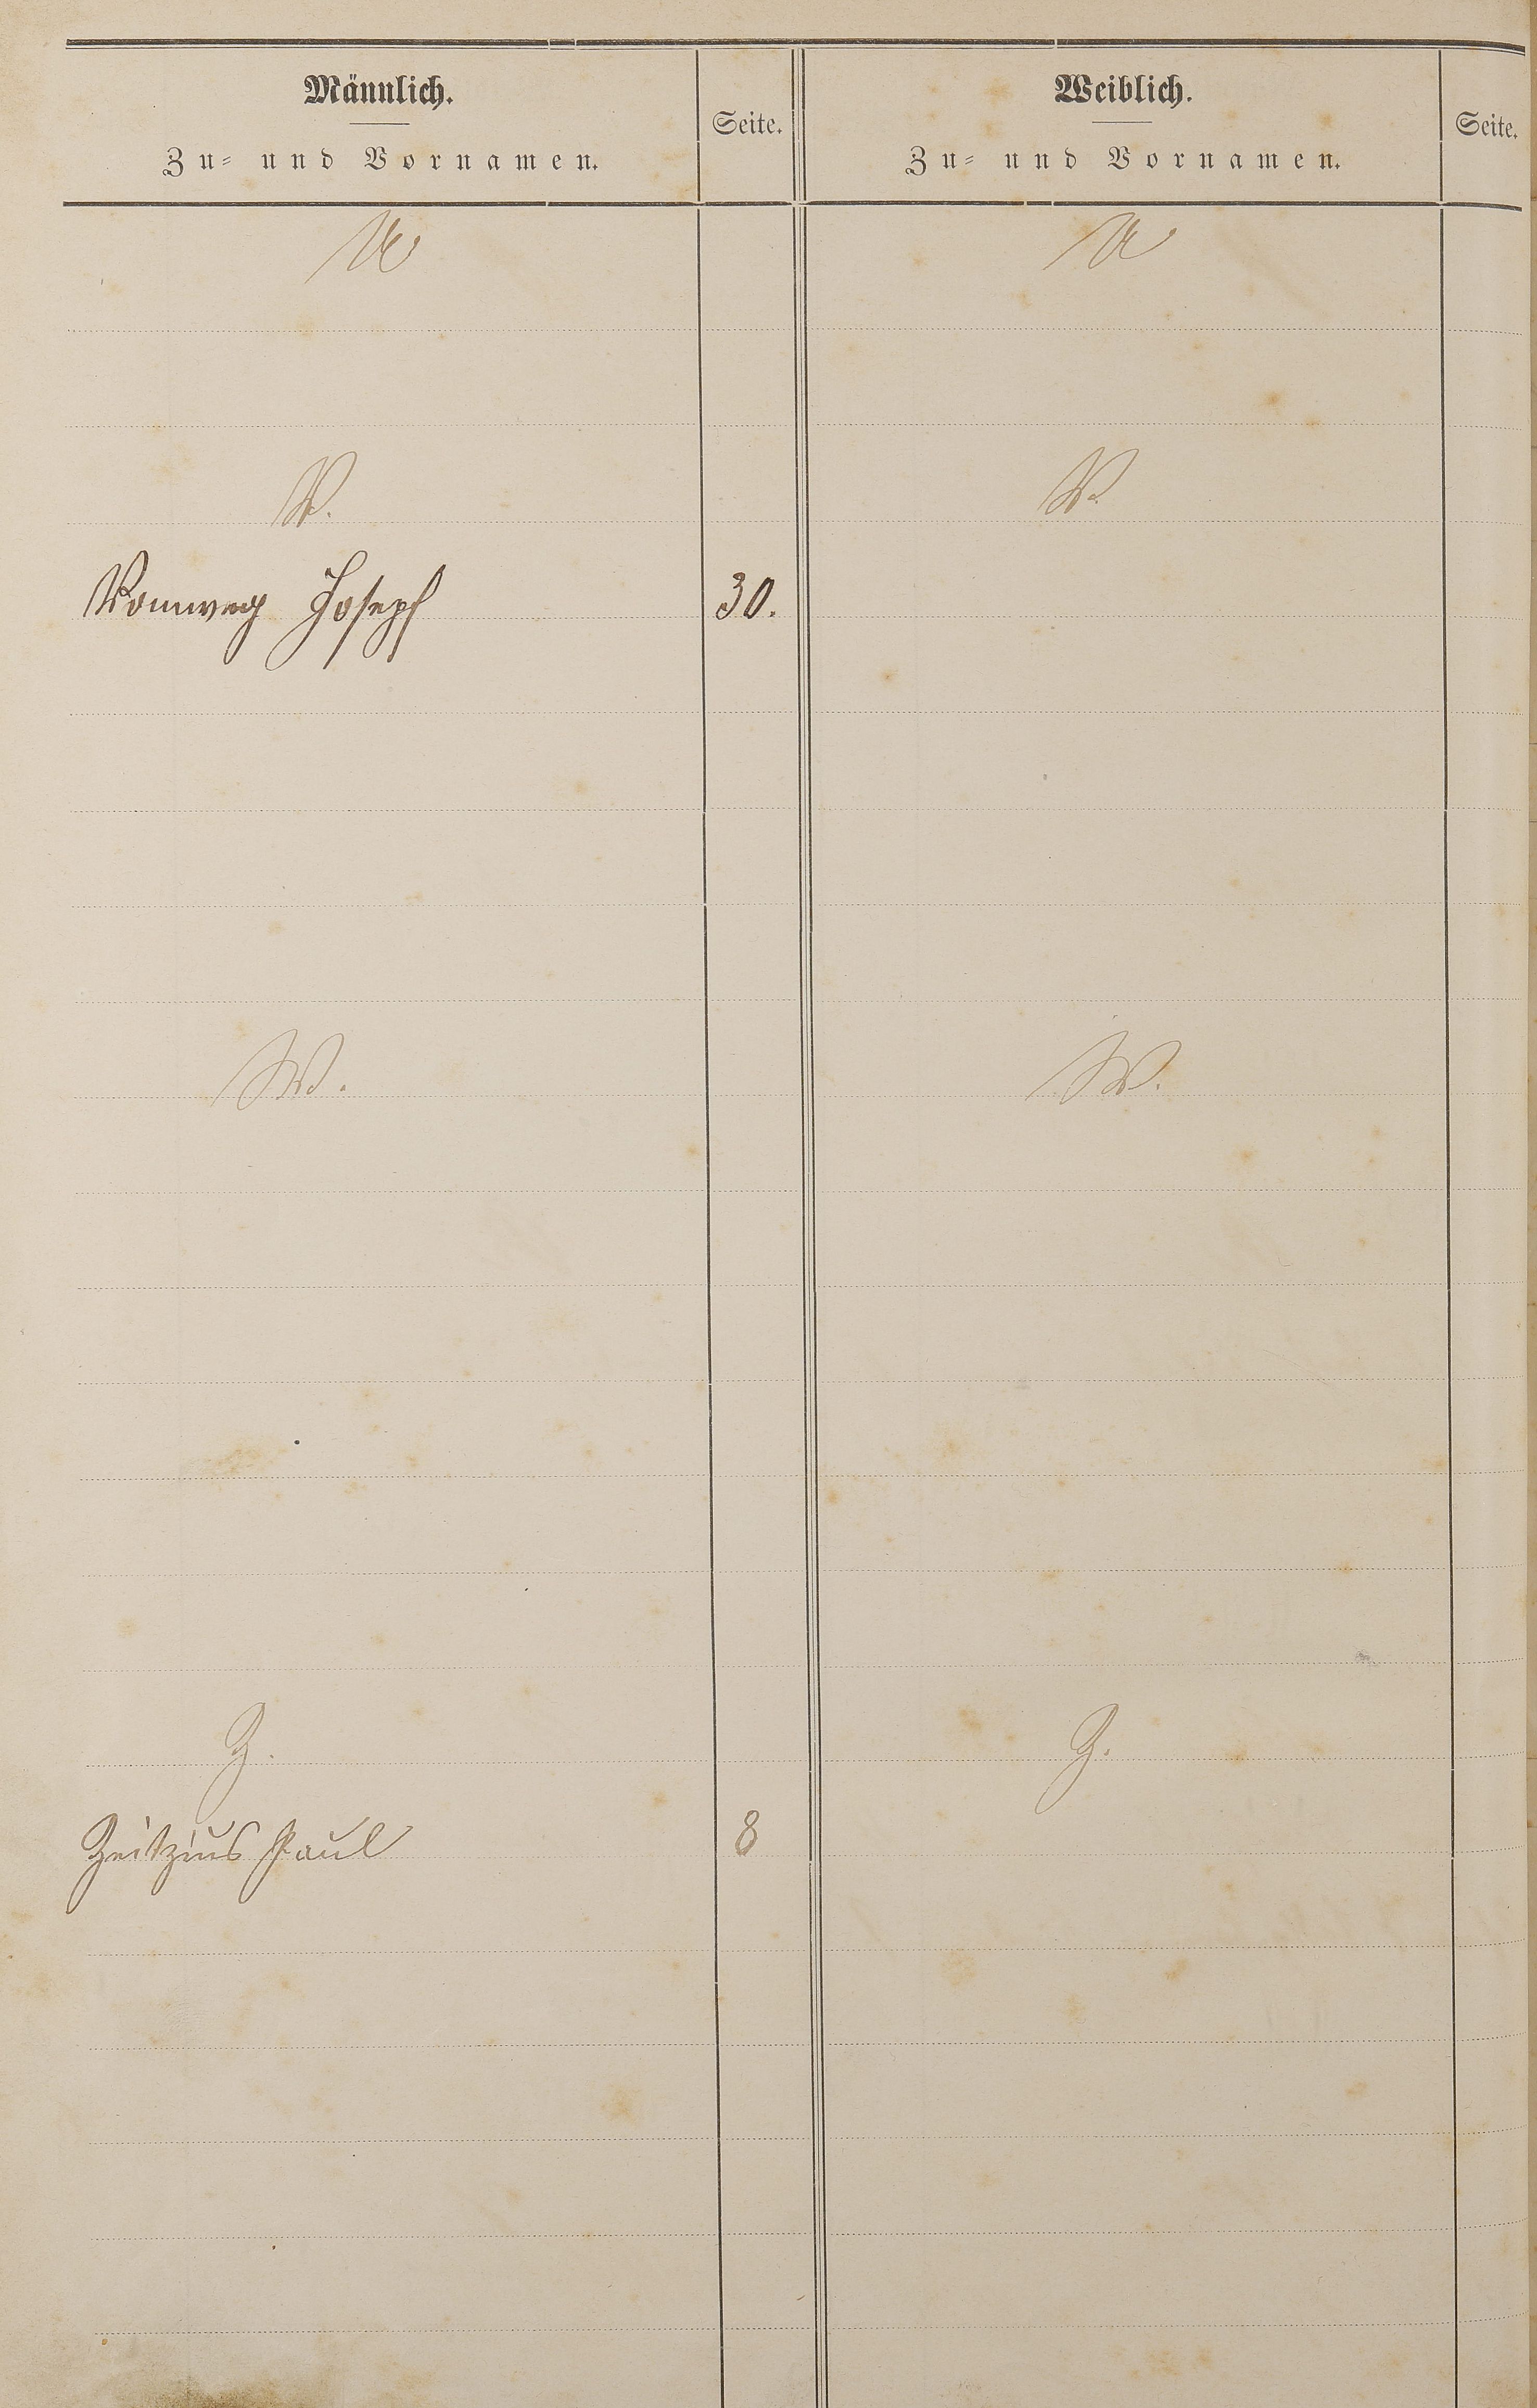 Männlich.
Zu- und Vornamen.
Seite.
Weiblich.
Zu- und Vornamen.
Seite.
U
U
V.
V.
Vomweg Joseph
30.
W.
W.
Z.
Z.
Zeitzius Paul
8